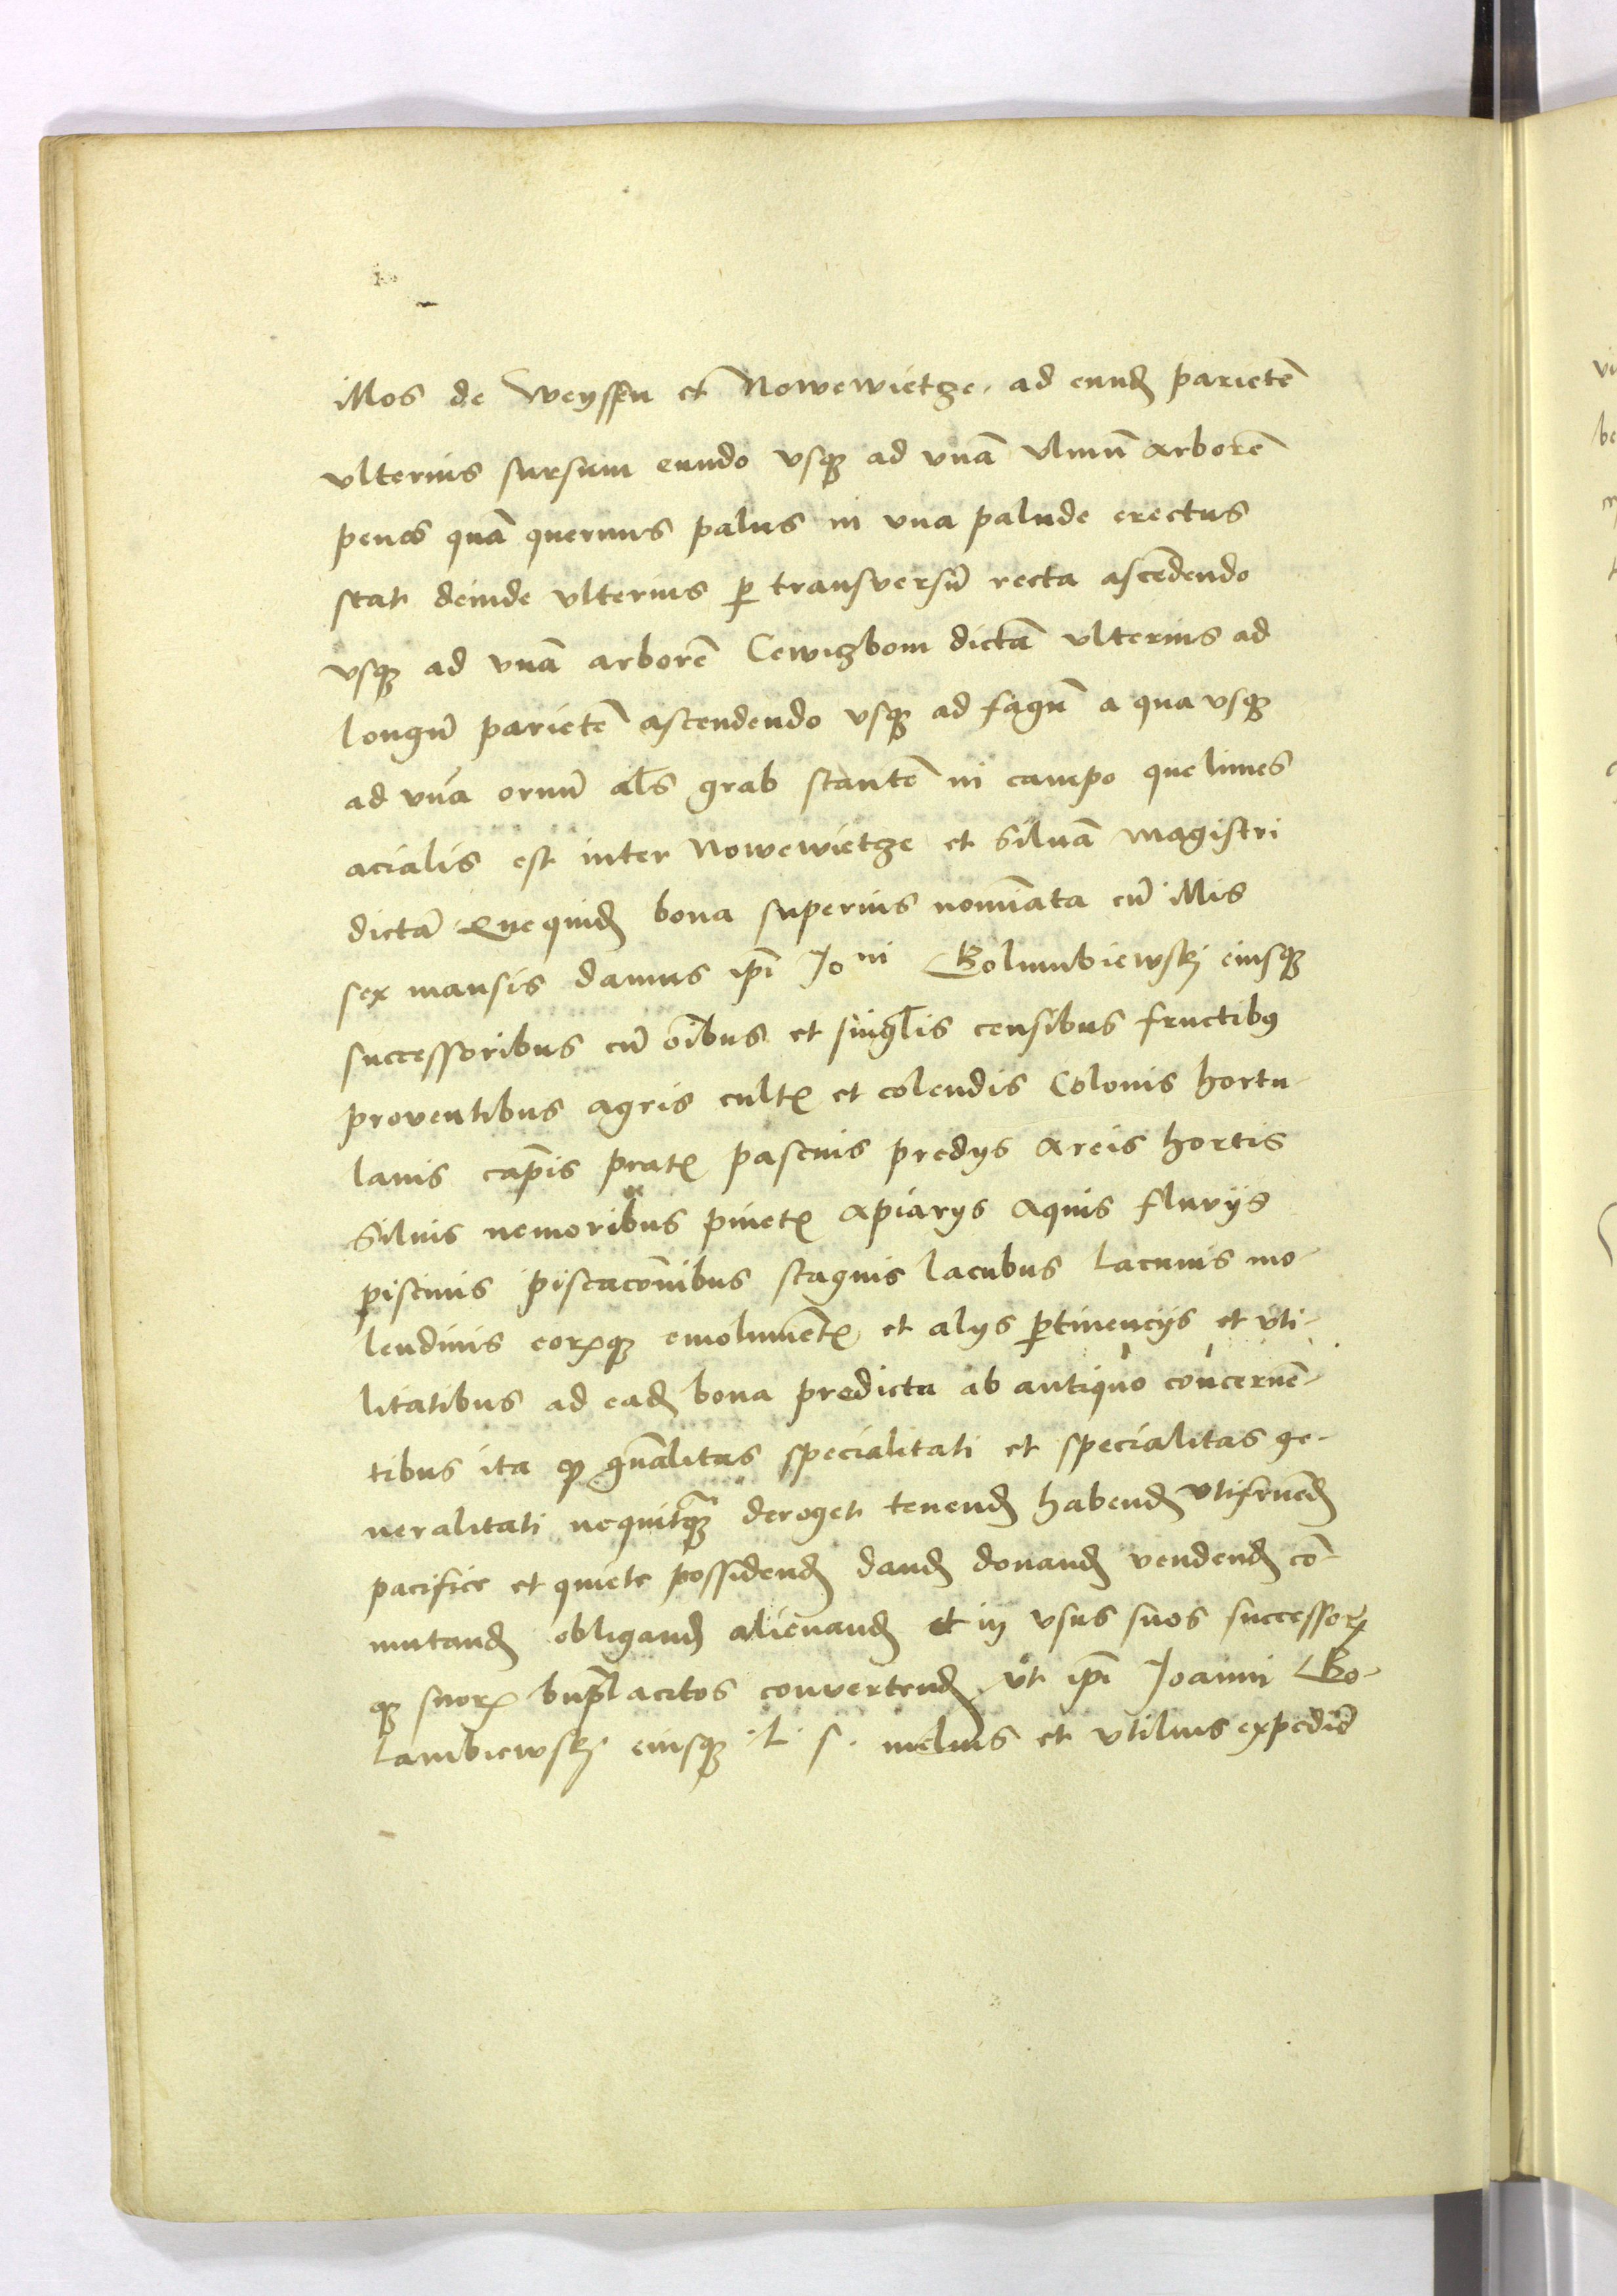 illos de Weyssen et Nowewietze. ad eund parietē
vlterius sursum eundo vsqȝ ad vnā vlmū arborē
penes quā quernus palus in vna palude erectus
stat deinde vlterius ꝑ transversū recta ascēdendo
vsqȝ ad vnā arborē Cewizbom dictā vlterius ad
longū parietē ascendendo vsqȝ ad fagū a qua vsqȝ
ad vnā ornū als grab stantē in campo que limes
acialis est inter Nowewietze et Siluā magistri
dictā Que quid bona superius nomīata cū illis
sex mansis damus ipī Joni Golumbiewskj eiusqȝ
successoribus cū oībus et singlis censibus fructibꝯ
proventibus agris cultꝭ et colendis Colonis hortu-
lanis cāpis pratꝭ pascuis predys areis hortis
Siluis nemoribus pinetꝭ apiarys aquis fluvijs
piscinis piscacoībus stagnis lacubus lacunis mo-
lendinis eorꝝqȝ emolumētꝭ et alys ꝑtinencijs et vti-
litatibus ad ead bona predicta ab antiquo concernē-
tibus ita ꝙ gnālitas specialitati et specialitas ge-
neralitati nequitqȝ deroget tenend habend vtifruēd
pacifice et quiete possidend dand donand vendend cō-
mutand obligand alienand et in vsus suos successorꝝ
qȝ suorꝝ bnplacitos convertend vt ipī Joanni Go-
lambiewskj eiusqȝ .L. s. melius et vtilius expedie